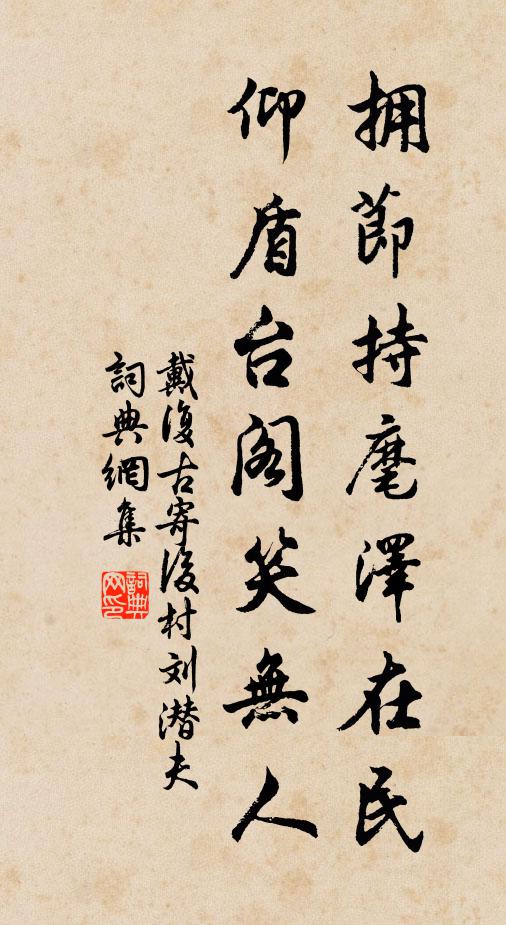 拥節持麾澤在民
仰盾台阁笑無人
戴復古寄後村刘潜夫
詞典網集
詞典网印